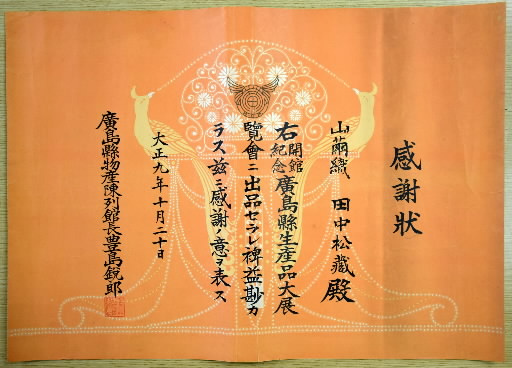 感謝狀
山繭織 田中松藏殿
右開館紀念廣島縣生產品大展
覽會ニ出品セラレ裨益尠カ
ラス玆ニ感謝ノ意ヲ表ス
大正九年十月二十日
廣島縣物產陳列館長豊島銳郎